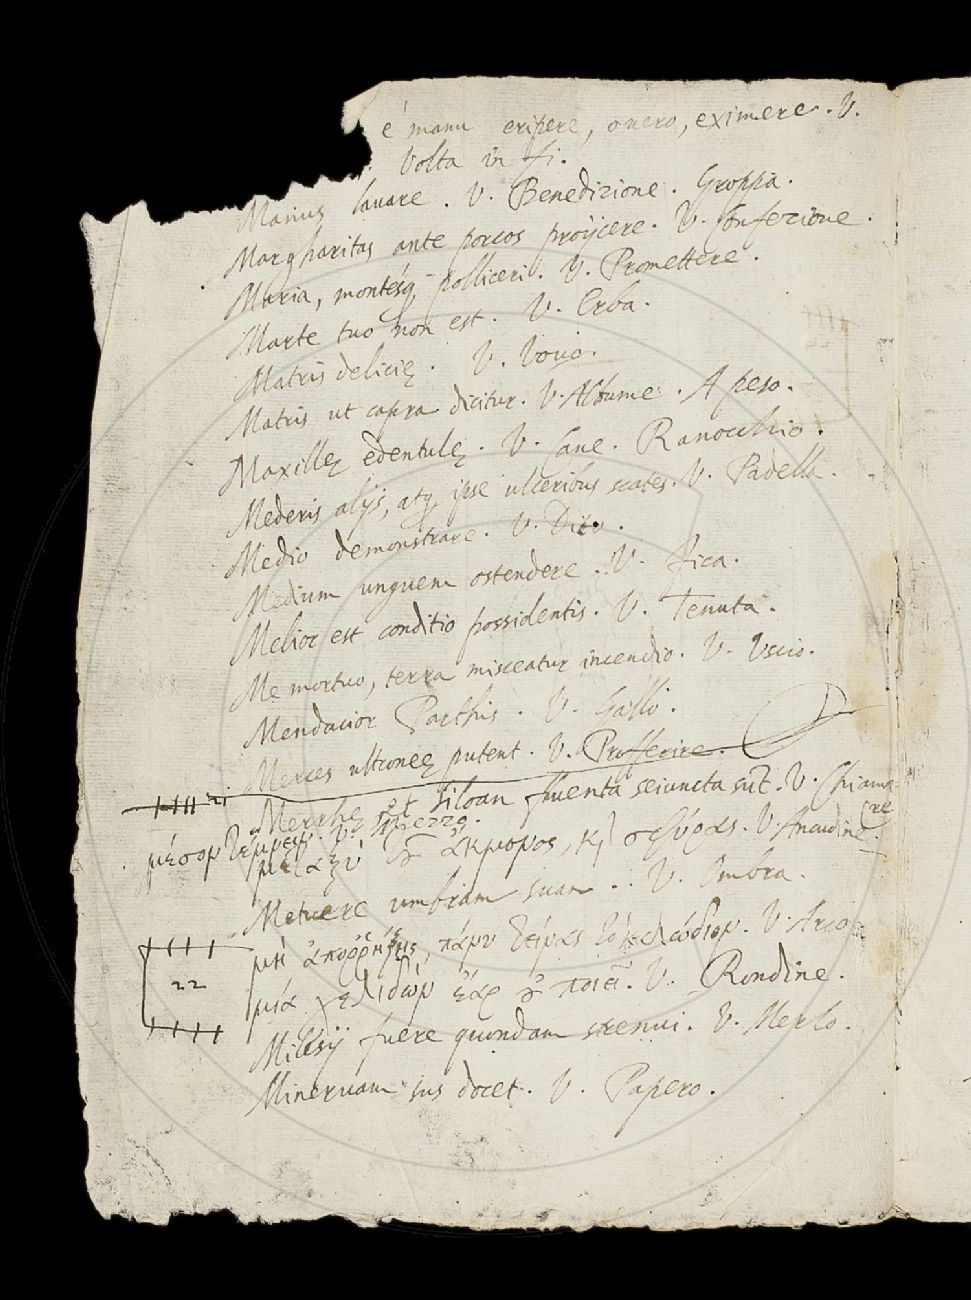 è manu eripere, ouero, eximere. V.
Volta in
Manus lauare. V. Benedizione. Groppa.
Margharitas ante porcos proijcere. V. Confezione.
Maria, montesq; polliceri. V. Promettere.
Marte tuo non est. V. Erba.
Matris delicię. V. Vouo.
Matris ut capra dicitur. V. Albume. A peso.
Maxillę edentulę. V. Cane. Ranocchio.
Mederis alijs, atq; ipse ulceribus scates. V. Padella.
Medio demonstrare. V. Dito.
Medium unguem ostendere. V. Fica.
Melior est conditio possidentis. V. Tenuta.
Me mortuo, terra misceatur incendio. V. Vscio.
Mendacior Parthis. V. Galli.
Merces ultroneę putent. V. Profferire.
Siloan fluenta seiuncta sut. V. Chiamare
μέσον τέμνειν. V. Mezzo.
ἄκμονος, κ σφύρας. V. Ancudine
Metuere umbram suam. V. Ombra.
μὴ πάνυ V. Arco
μία χελιδὼν ἔαρ ȣ ποιεῖ. V. Rondine.
22
Milesij fuere quondam strenui. V. Merlo.
Mineruam sus docet. V. Papero.